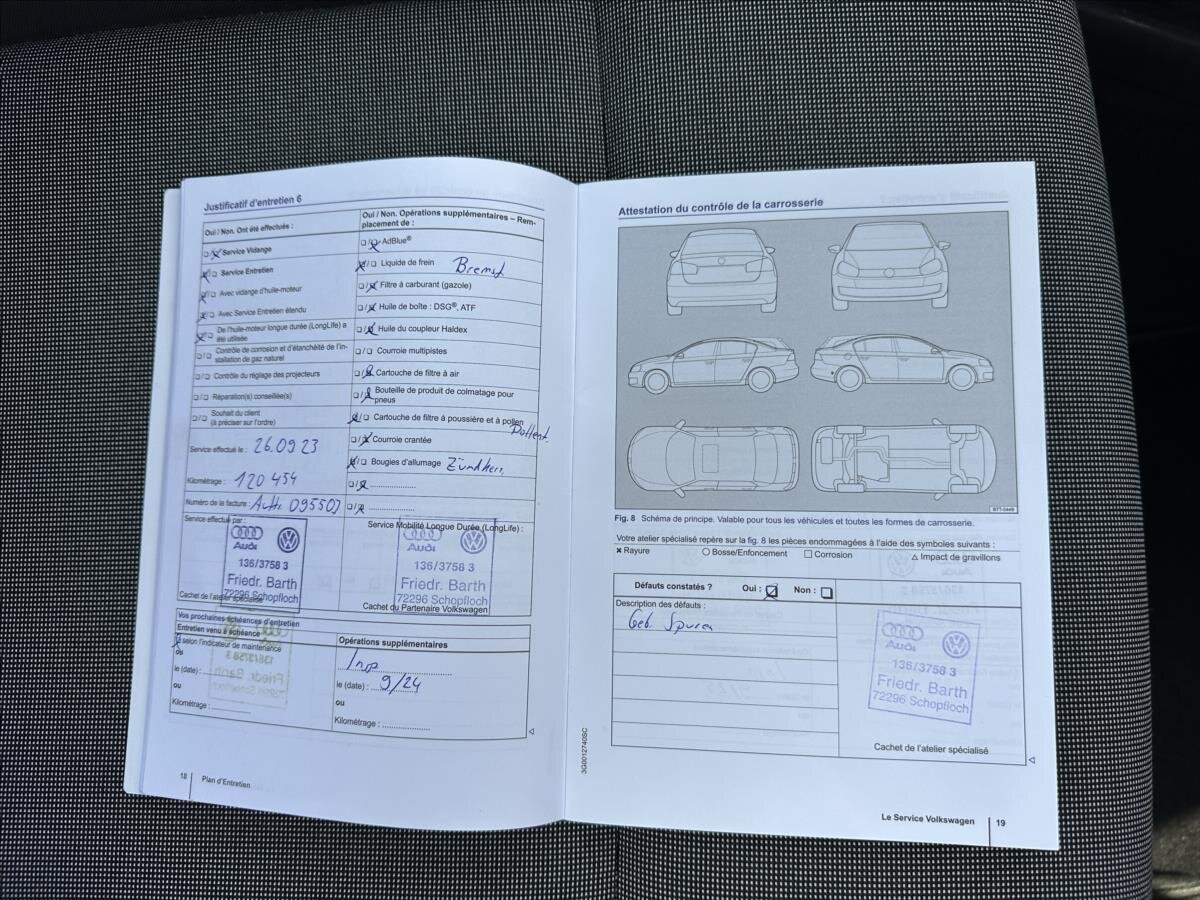 Justificatif d'entretien 6
Oui / Non. Ont été effectués :
Service Vidange
Service Entretien
Avec vidange d'huile-moteur
Avec Service Entretien étendu
De l'huile-moteur longue durée (LongLife) a
été utilisée
Contrôle de corrosion et d'étanchéité de l'in-
stallation de gaz naturel
Contrôle du réglage des projecteurs
Réparation(s) conseillée(s)
Souhait du client
(à préciser sur l'ordre)
Service effectué le : 26.09 23
Kilométrage : 120 454
Numéro de la facture :
Service effectué par :
Audi
136/3758 3
Friedr. Barth
72296 Schopfloch
Cachet de l'atelier spécialisé
Oui / Non. Opérations supplémentaires – Rem-
placement de :
AdBlue®
Liquide de frein Bremsf.
Filtre à carburant (gazole)
Huile de boîte : DSG®, ATF
Huile du coupleur Haldex
Courroie multipistes
Cartouche de filtre à air
Bouteille de produit de colmatage pour
pneus
Cartouche de filtre à poussière et à pollen
Courroie crantée
Bougies d'allumage
Service Mobilité Longue Durée (LongLife) :
Audi
136/3758 3
Friedr. Barth
72296 Schopfloch
Cachet du Partenaire Volkswagen
Vos prochaines échéances d'entretien
Entretien venu à échéance
selon l'indicateur de maintenance
ou
le (date) :
ou
Kilométrage :
Opérations supplémentaires
Insp
le (date) : 9/24
ou
Kilométrage :
18 Plan d'Entretien
Attestation du contrôle de la carrosserie
BTT-0449
Fig. 8 Schéma de principe. Valable pour tous les véhicules et toutes les formes de carrosserie.
Votre atelier spécialisé repère sur la fig. 8 les pièces endommagées à l'aide des symboles suivants :
Rayure Bosse/Enfoncement Corrosion Impact de gravillons
Défauts constatés ? Oui : Non :
Description des défauts :
Geb. Spuren
Audi
136/3758 3
Friedr. Barth
72296 Schopfloch
Cachet de l'atelier spécialisé
3G0012740SC
Le Service Volkswagen 19